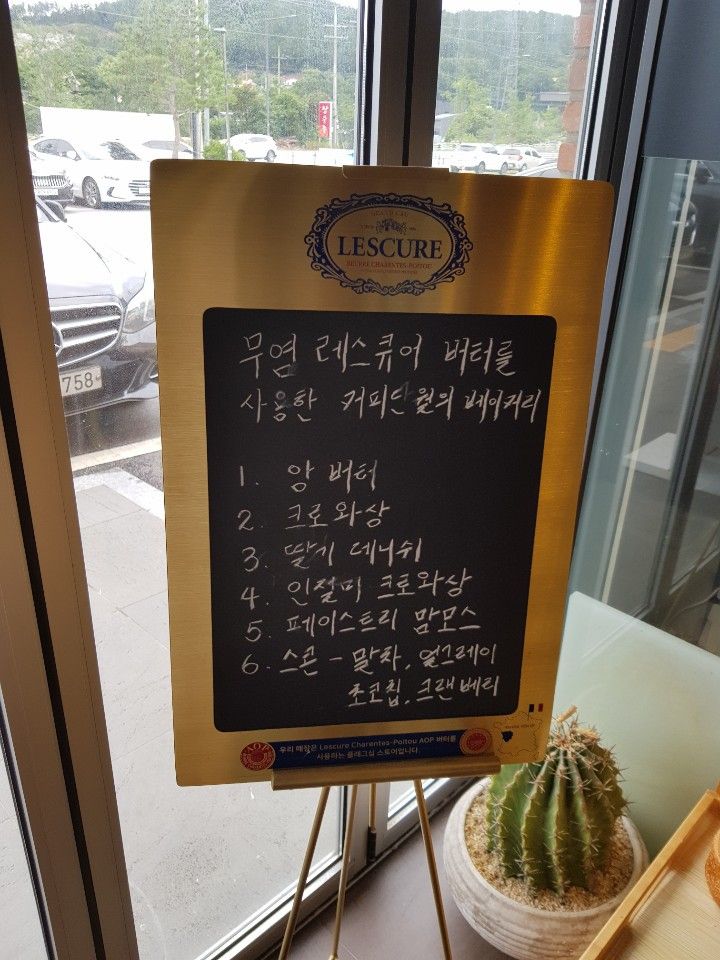 LESCURE
BEURRE CHARENTES-POITOU
무염 레스큐어 버터를
사용한 커피단월의 베이커리
1. 앙 버터
2. 크로와상
3. 딸기 데니쉬
4. 인절미 크로와상
5. 페이스트리 맘모스
6. 스콘 - 말차, 얼그레이
초코칩, 크랜베리
AOP
우리 매장은 Lescure Charentes-Poitou AOP 버터를
사용하는 플래그쉽 스토어입니다.
758